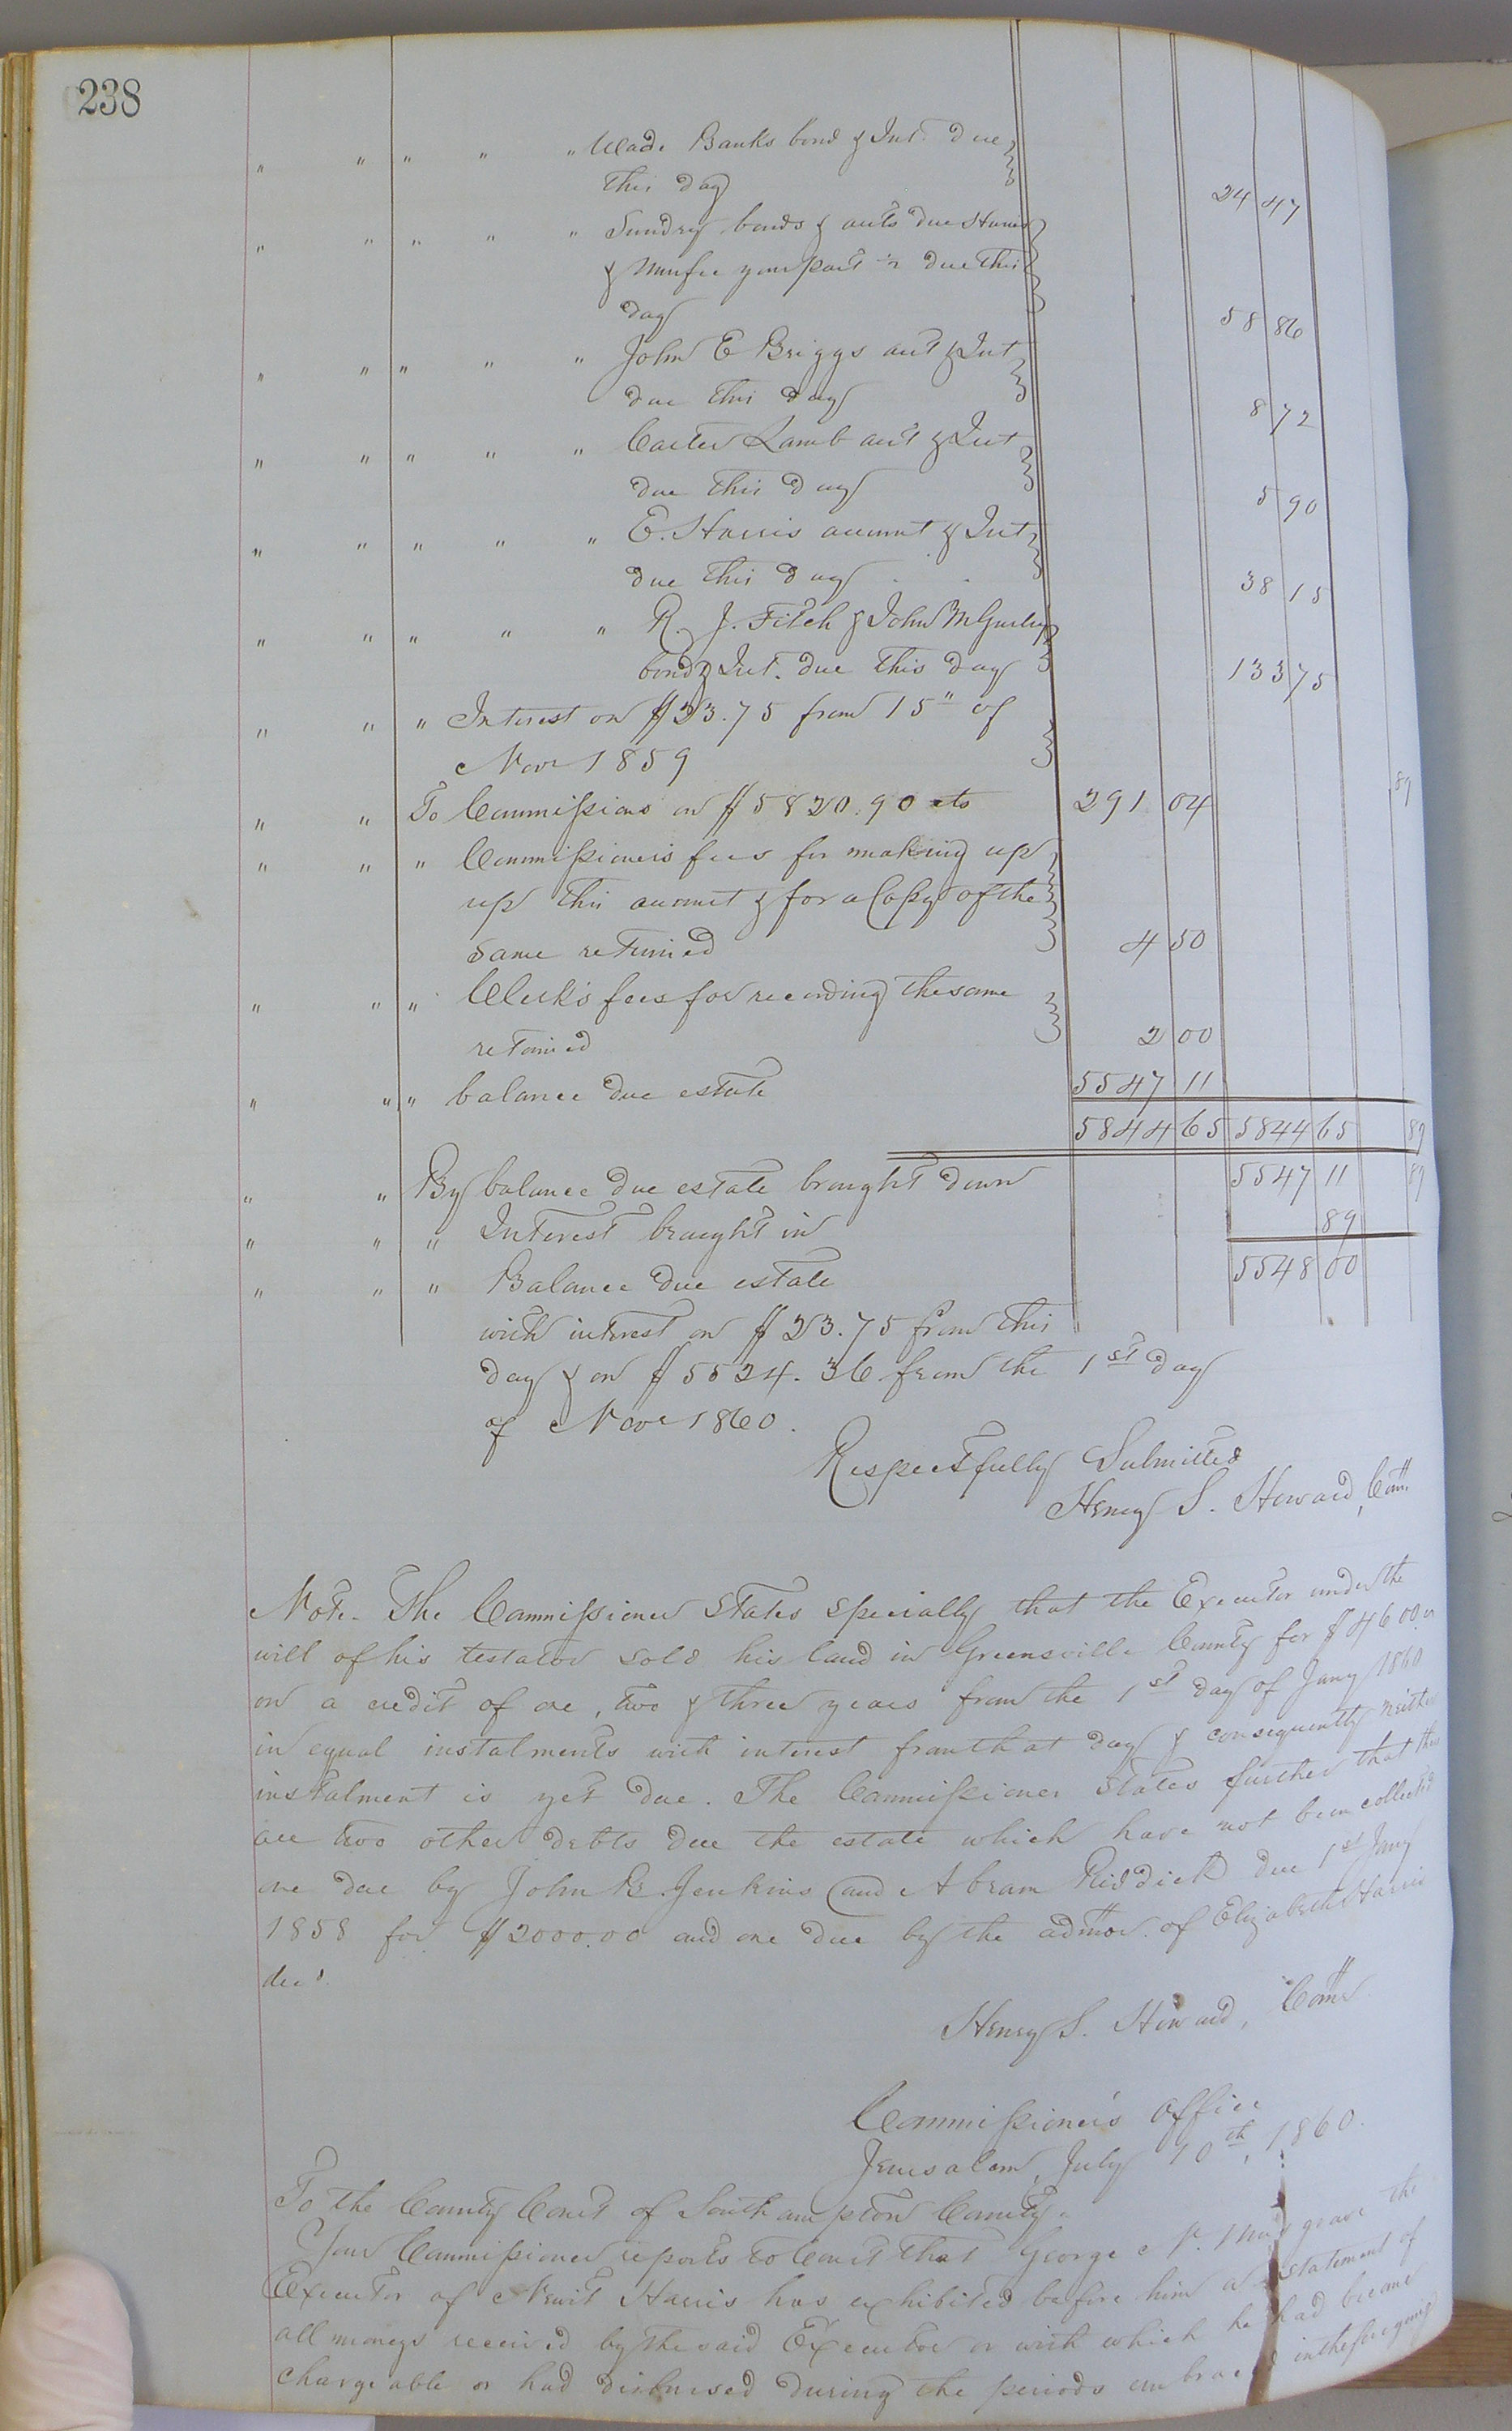 238
" " " " " Wade Banks bond & Int. due
this day 24 47
" " " " " Sundry bonds & acts due Harris
& your part due this
day 58 86
" " " " " John E Briggs act & Int
due this day 8 72
" " " " " Carter Lamb act & Int
due this day 5 90
" " " " " E. Harris account & Int
due this day 38 15
" " " " " R. J. Fitch & John
bond & Int. due this day 133 75
" " " Interest on $23.75 from 15" of
Nov 1859 89
" " To Commissions on $5820.90 cts 291 04
" " " Commissioner's fees for making up
up this account & for a Copy of the
same returned 4 50
" " " Clerk's fees for recording the same
retained 2 00
" " " balance due estate 5547 11
5844 65 5844 65 89
" " By balance due estate brought down 5547 11 89
" " " Interest brought in 89
" " " Balance due estate 5548 00
with interest on $23.75 from this
day & on $5524.36 from the 1st day
of Nov 1860.
Respectfully Submitted
Henry S. Howard, Comr.
Note. The Commissioner States specially that the Executor under the
will of his testator sold his land in Greensville County for $4600.
on a credit of one, two & three years from the 1st day of Jany 1860
in equal instalments with interest from that day & consequently neither
instalment is yet due. The Commissioner States further that there
are two other debts due the estate which have not been collected
one due by John B. Jenkins and Abram Riddick due 1st Jany
1858 for $2000.00 and one due by the admor. of Elizabeth Harris
decd.
Henry S. Howard, Comr
Commissioner's Office
Jerusalem, July 10th, 1860.
To the County Court of Southampton County.
Your Commissioner reports to Court that George N. Musgrave the
Executor of Newit Harris has exhibited before him a statement of
all moneys received by the said Executor or with which he had become
chargeable or had disbursed during the periods embraced in the foregoing